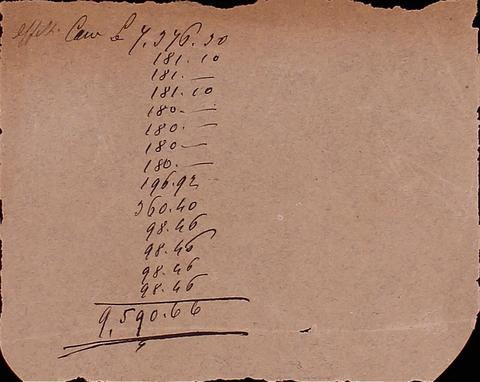 £ 7,376.30
181.10
181.—
181.10
180.—
180.—
180.—
180.—
196.92
360.40
98.46
98.46
98.46
98.46
9,590.66